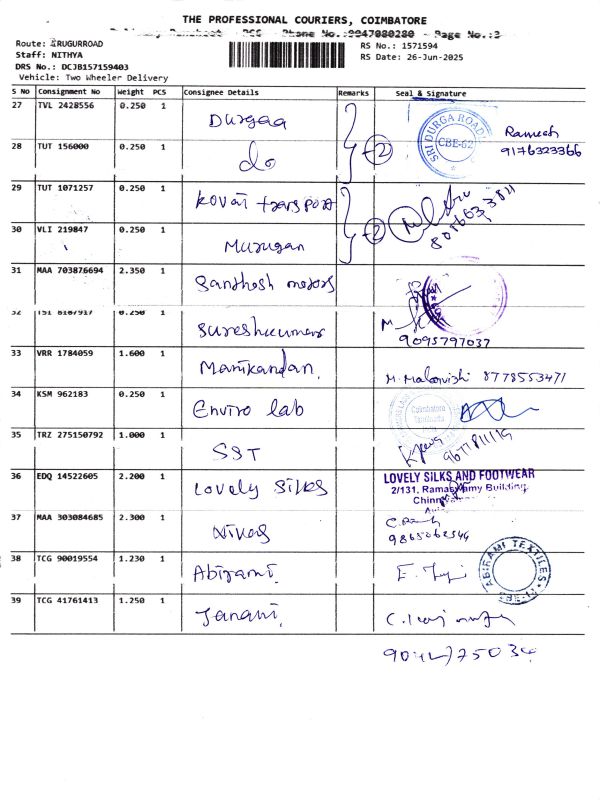 THE PROFESSIONAL COURIERS, COIMBATORE
Delivery Runsheet - PCS - Phone No.:9047080280 - Page No.:3
Route: IRUGURROAD
Staff: NITHYA
DRS No.: DCJB157159403
Vehicle: Two Wheeler Delivery
RS No.: 1571594
RS Date: 26-Jun-2025
S No Consignment No Weight PCS Consignee Details Remarks Seal & Signature
27 TVL 2428556 0.250 1 Durgaa
SRI DURGA ROAD
CBE-62
Ramesh
9176323366
28 TUT 156000 0.250 1 do
2
29 TUT 1071257 0.250 1 Kovai transport
30 VLI 219847 0.250 1 Murugan
2
31 MAA 703876694 2.350 1 Santhosh motors
32 TSI 8107917 0.250 1 Sureshkumar
M
9095797037
33 VRR 1784059 1.600 1 Manikandan
M. Malarvizhi 8778553471
34 KSM 962183 0.250 1 Enviro lab
Coimbatore
35 TRZ 275150792 1.000 1 SST
36 EDQ 14522605 2.200 1 Lovely Silks
LOVELY SILKS AND FOOTWEAR
2/131, Ramaswamy Building,
37 MAA 303084685 2.300 1 Nivas
9865062544
38 TCG 90019554 1.230 1 Abirami
ABIRAMI TEXTILES
39 TCG 41761413 1.250 1 Janani